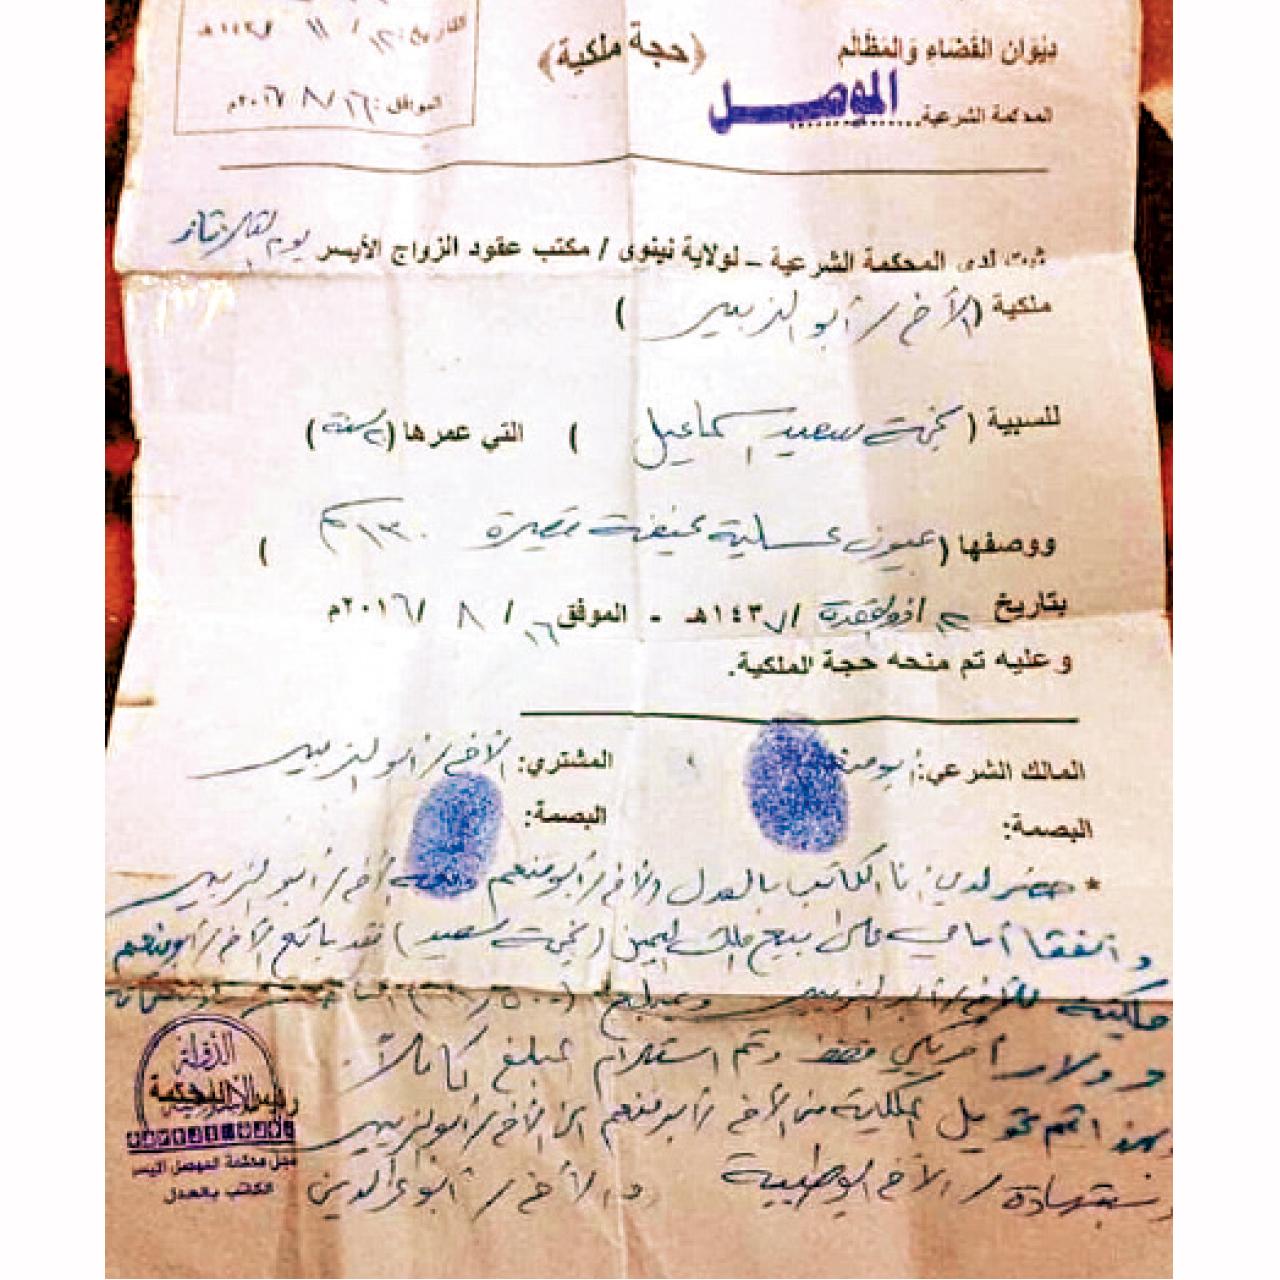 ديوان القضاء والمظالم
المحكمة الشرعية الموصل
(حجة ملكية)
التاريخ: ١٢ / ١١ / ١٤٣٧ هـ
الموافق: ١٦ / ٨ / ٢٠١٦م
ثبت لدى المحكمة الشرعية – لولاية نينوى / مكتب عقود الزواج الأيسر يوم
ملكية (الأخ / أبو الزبير)
للسبية ( سعيد اسماعيل ) التي عمرها ( سنة)
ووصفها (عيون عسلية نحيفة قصيرة ١٣٠ سم )
بتاريخ ١٢ / ذو القعدة / ١٤٣٧هـ - الموفق ١٦ / ٨ / ٢٠١٦م
وعليه تم منحه حجة الملكية.
المالك الشرعي: المشتري: الأخ / أبو الزبير
البصمة: البصمة:
* حضر لدي انا الكاتب بالعدل الأخ / أبو منعم الأخ / أبو الزبير
و اتفقا أمامي على بيع ملك اليمين ( سعيد) فقد بائع الأخ / أبو منعم
ملكيته للأخ / أبو الزبير
دولار أمريكي فقط وتم استلام المبلغ كاملاً
وبهذا تم تحويل الملكية من الأخ / أبو منعم الى الأخ / أبو الزبير
بشهادة / الأخ و الأخ / أبو عز الدين
الدولة
الإسلامية
رئيس المحكمة
الكاتب بالعدل